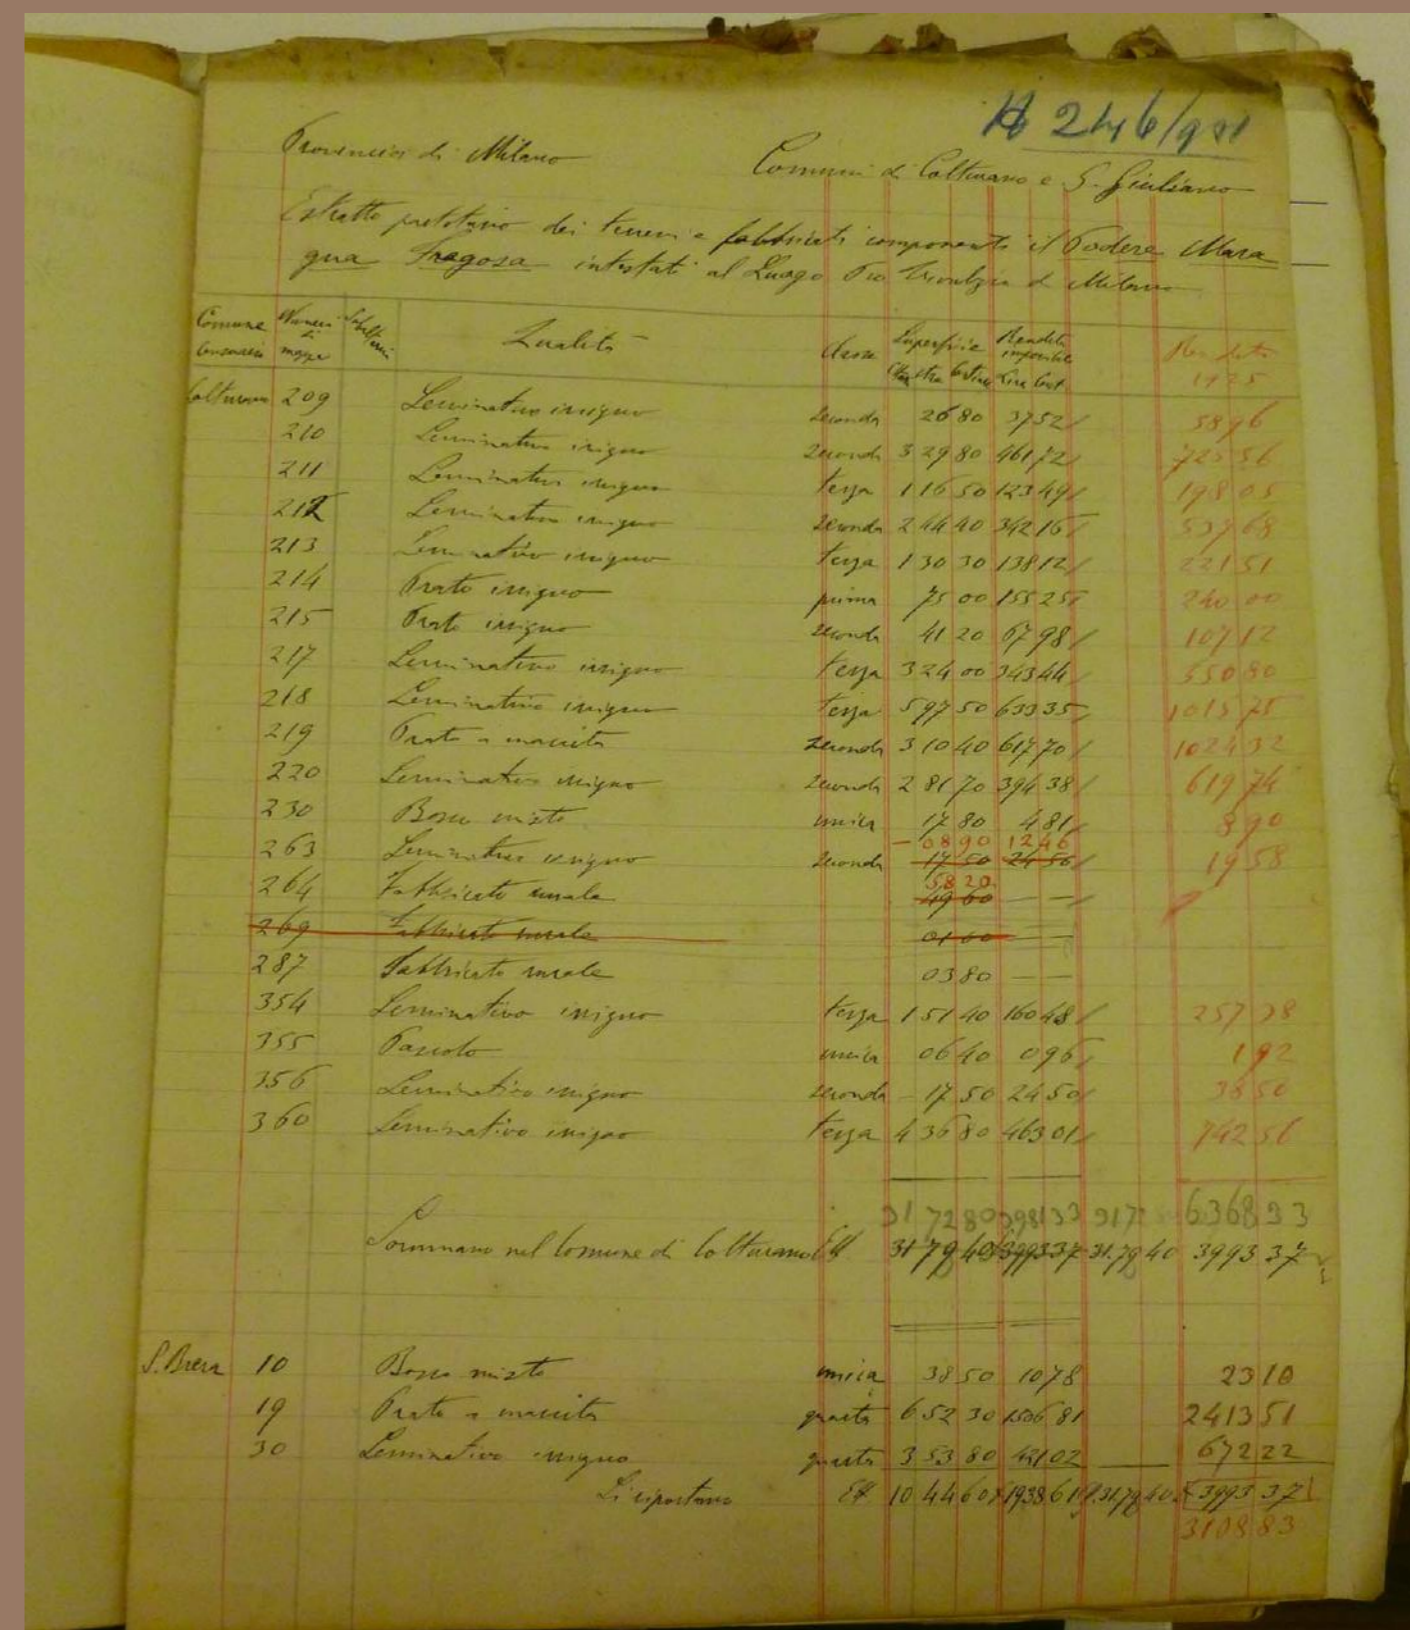 N 246/901
Provincia di Milano Comuni di Colturano e S. Giuliano
Estratto dei terreni e fabbricati componenti il Podere Mara
gna Fragosa intestati al Luogo Pio Trivulzio di Milano
Comune censuario Numeri di mappa Subalterni Qualità Classe Superficie Rendita imponibile Rendita 1925
Ettari Are Centiare Lire Cent
Colturano 209 Seminativo irriguo seconda 26 80 37 52 58 96
210 Seminativo irriguo seconda 3 29 80 461 72 725 56
211 Seminativo irriguo terza 1 16 50 123 49 198 05
212 Seminativo irriguo seconda 2 44 40 342 16 68
213 Seminativo irriguo terza 1 30 30 138 12 221 51
214 Prato irriguo prima 75 00 155 25 240 00
215 Prato irriguo seconda 41 20 67 98 107 12
217 Seminativo irriguo terza 3 24 00 343 44 550 80
218 Seminativo irriguo terza 5 97 50 633 35 1015 75
219 Prato a marcita seconda 3 10 40 617 70 1024 32
220 Seminativo irriguo seconda 2 81 70 394 38 619 74
230 Bosco misto unica 17 80 4 81 8 90
— 08 90 12 46
263 Seminativo irriguo seconda 17 50 24 50 19 58
58 20
264 Fabbricato rurale 49 60 — —
269 Fabbricato rurale 01 60 — —
287 Fabbricato rurale 03 80 — —
354 Seminativo irriguo terza 1 51 40 160 48 257 38
355 Pascolo unica 06 40 0 96 1 92
356 Seminativo irriguo seconda — 17 50 24 50 38 50
360 Seminativo irriguo terza 4 36 80 463 01 742 56
31 72 80 3981 33 317 6368 33
Sommano nel Comune di Colturano Ett 31 79 40 3993 37 31.79 40 3993 37
S. Brera 10 Bosco misto unica 38 50 10 78 23 10
19 Prato a marcita quarta 6 52 30 1506 81 2413 51
30 Seminativo irriguo quarta 3 53 80 421 02 672 22
Si riportano Ett 10 44 60 1938 61 31.79 40 3993 37
3108 83